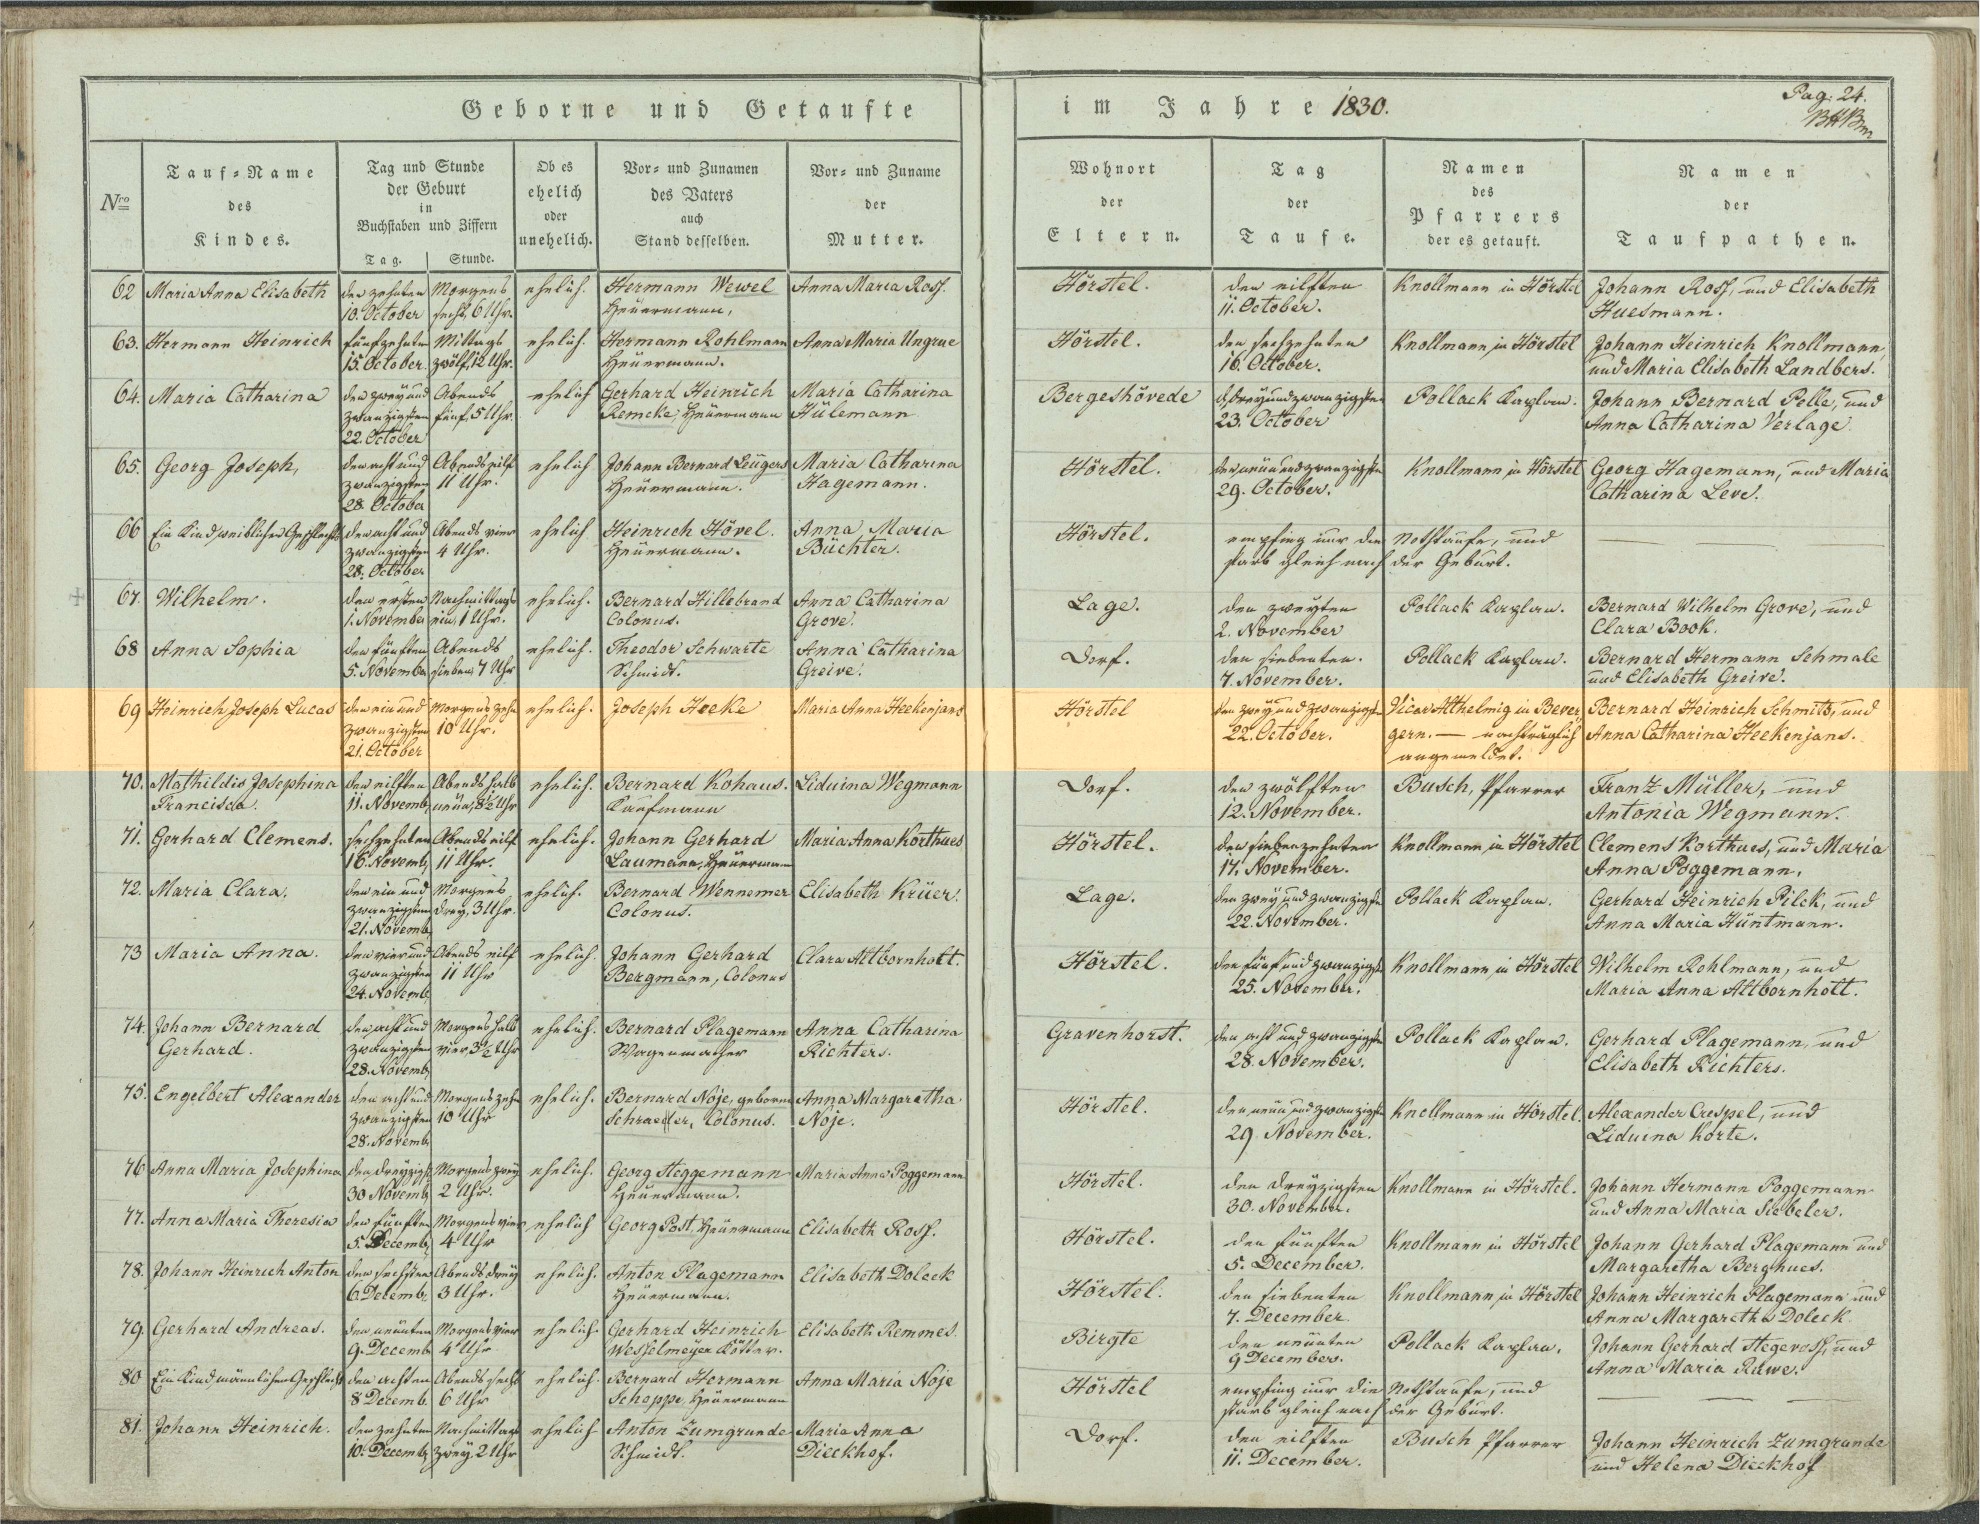 Geborne und Getaufte
im Jahre 1830.
Pag: 24.
Nro
Tauf-Name
des
Kindes.
Tag und Stunde
der Geburt
in
Buchstaben und Ziffern
Tag.
Stunde.
Ob es
ehelich
oder
unehelich.
Vor- und Zunamen
des Vaters
auch
Stand desselben.
Vor- und Zuname
der
Mutter.
Wohnort
der
Eltern.
Tag
der
Taufe.
Namen
des
Pfarrers
der es getauft.
Namen
der
Taufpathen.
62 Maria Anna Elisabeth den zehnten Morgens ehelich. Hermann Wewel Anna Maria Ross. Hörstel. den eilften Knollmann in Hörstel Johann Ross, und Elisabeth
10. October sechs, 6 Uhr. Heüermann, 11. October. Huesmann.
63. Hermann Heinrich fünfzehnten Mittags ehelich. Hermann Rohlmann Anna Maria Ungrue Hörstel. den sechzehnten Knollmann in Hörstel Johann Heinrich Knollmann,
15. October. zwölf, 12 Uhr. Heüermann. 16. October. und Maria Elisabeth Landbers.
64. Maria Catharina den zwey und Abends ehelich Gerhard Heinrich Maria Catharina Bergeshövede d. dreyundzwanzigsten Pollack Kaplan. Johann Bernard Pelle, und
zwanzigsten fünf, 5 Uhr. Remcke, Heüermann Hülemann 23. October Anna Catharina Verlage.
22. October
65. Georg Joseph, den acht und Abends eilf ehelich Johann Bernard Leügers Maria Catharina Hörstel. den neün und zwanzigsten Knollmann in Hörstel Georg Hagemann, und Maria
zwanzigsten 11 Uhr. Heüermann. Hagemann. 29. October. Catharina Leve.
28. October
66 Ein Kind weiblichen Geschlechts den acht und Abends vier ehelich Heinrich Hövel. Anna Maria Hörstel. empfing nur die Nothtaufe, und
zwanzigsten 4 Uhr. Heüermann. Büchter. starb gleich nach der Geburt.
28. October
67. Wilhelm. den ersten Nachmittags ehelich. Bernard Hillebrand Anna Catharina Lage. den zweyten Pollack Kaplan. Bernard Wilhelm Grove, und
1. November ein, 1 Uhr. Colonus. Grove. 2. November Clara Book.
68 Anna Sophia den fünften Abends ehelich. Theodor Schwarte Anna Catharina Dorf. den siebenten. Pollack Kaplan. Bernard Hermann Schmale
5. November sieben, 7 Uhr Schmidt. Greive. 7. November. und Elisabeth Greive.
69 Heinrich Joseph Lucas den ein und Morgens zehn ehelich. Joseph Heeke Maria Anna Heekenjans Hörstel den zwey und zwanzigsten Vicar Althelmig in Bever- Bernard Heinrich Schmitz, und
zwanzigsten 10 Uhr. 22. October. gern. — nachträglich Anna Catharina Heekenjans.
21. October angemeldet.
70. Mathildis Josephina den eilften Abends halb ehelich. Bernard Kohaus. Liduina Wegmann Dorf. den zwölften Busch, Pfarrer Franz Müller, und
Francisca. 11. Novemb. neün, 8½ Uhr Kaufmann 12. November. Antonia Wegmann.
71. Gerhard Clemens. sechzehnten Abends eilf ehelich. Johann Gerhard Maria Anna Korthues Hörstel. den siebenzehnten Knollmann in Hörstel Clemens Korthues, und Maria
16. Novemb. 11 Uhr. Laumann, Heüermann 17. November. Anna Poggemann.
72. Maria Clara. den ein und Morgens ehelich. Bernard Wennemer Elisabeth Krüer. Lage. den zwey und zwanzigsten Pollack Kaplan. Gerhard Heinrich Pilck, und
zwanzigsten drey, 3 Uhr. Colonus. 22. November. Anna Maria Hüntmann.
21. Novemb.
73 Maria Anna. den vier und Abends eilf ehelich. Johann Gerhard Clara Attbornholt. Hörstel. den fünf und zwanzigsten Knollmann in Hörstel Wilhelm Rohlmann, und
zwanzigsten 11 Uhr Bergmann, Colonus 25. November. Maria Anna Attbornholt.
24. Novemb.
74. Johann Bernard den acht und Morgens halb ehelich. Bernard Plagemann Anna Catharina Gravenhorst. den acht und zwanzigsten Pollack Kaplan. Gerhard Plagemann, und
Gerhard. zwanzigsten vier, 3½ Uhr Wagenmacher Richters. 28. November. Elisabeth Richters.
28. Novemb.
75. Engelbert Alexander den acht und Morgens zehn ehelich. Bernard Noje, geborne Anna Margaretha Hörstel. den neün und zwanzigsten Knollmann in Hörstel. Alexander Crespel, und
zwanzigsten 10 Uhr Schraeder, Colonus. Noje. 29. November. Liduina Korte.
28. Novemb.
76. Anna Maria Josephina den dreyzigst. Morgens zwey ehelich. Georg Steggemann Maria Anna Poggemann Hörstel. den dreyzigsten Knollmann in Hörstel. Johann Hermann Poggemann
30 Novemb. 2 Uhr. Heüermann. 30. November. und Anna Maria Siebeler.
77. Anna Maria Theresia den fünften Morgens vier ehelich Georg Post, Heüermann Elisabeth Ross. Hörstel. den fünften Knollmann in Hörstel Johann Gerhard Plagemann und
5. Decemb. 4 Uhr 5. December. Margaretha Berghues.
78. Johann Heinrich Anton den sechsten Abends drey ehelich. Anton Plagemann Elisabeth Doleck Hörstel. den siebenten Knollmann in Hörstel Johann Heinrich Plagemann und
6. Decemb. 3 Uhr. Heüermann. 7. December Anna Margaretha Doleck
79. Gerhard Andreas. den neünten Morgens vier ehelich. Gerhard Heinrich Elisabeth Remmes. Birgte den neünten Pollack Kaplan. Johann Gerhard Stegeross, und
9. Decemb 4 Uhr Wesselmeyer Kötter. 9 December. Anna Maria Rawe.
80 Ein Kind männlichen Geschlechts den achten Abends sechs ehelich. Bernard Hermann Anna Maria Noje Hörstel empfing nur die Nothtaufe, und
8 Decemb. 6 Uhr Schoppe, Heüermann starb gleich nach der Geburt.
81. Johann Heinrich. den zehnten Nachmittags ehelich Anton Zumgrunde Maria Anna Dorf. den eilften Busch Pfarrer Johann Heinrich Zumgrunde
10. Decemb. zwey, 2 Uhr Schmidt. Dieckhof. 11. December. und Helena Dieckhof